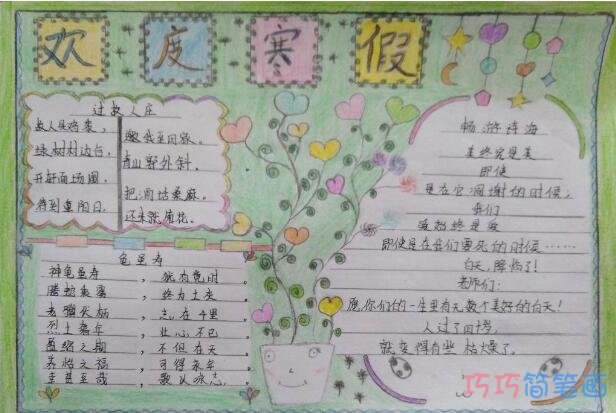 欢度寒假
过故人庄
故人具鸡黍，邀我至田家。
绿树村边合，青山郭外斜。
开轩面场圃，把酒话桑麻。
待到重阳日，还来就菊花。
龟虽寿
神龟虽寿，犹有竟时。
腾蛇乘雾，终为土灰。
老骥伏枥，志在千里
烈士暮年，壮心不已
盈缩之期，不但在天
养怡之福，可得永年
幸甚至哉，歌以咏志。
畅游诗海
美终究是美
即使
是在它凋谢的时候；
我们
终是
即使是在我们要死的时候……
白天，降临了！
老师们：
愿你们的一生里有无数个美好的白天！
人过了四十，
就变得有些枯燥了。
巧巧简笔画